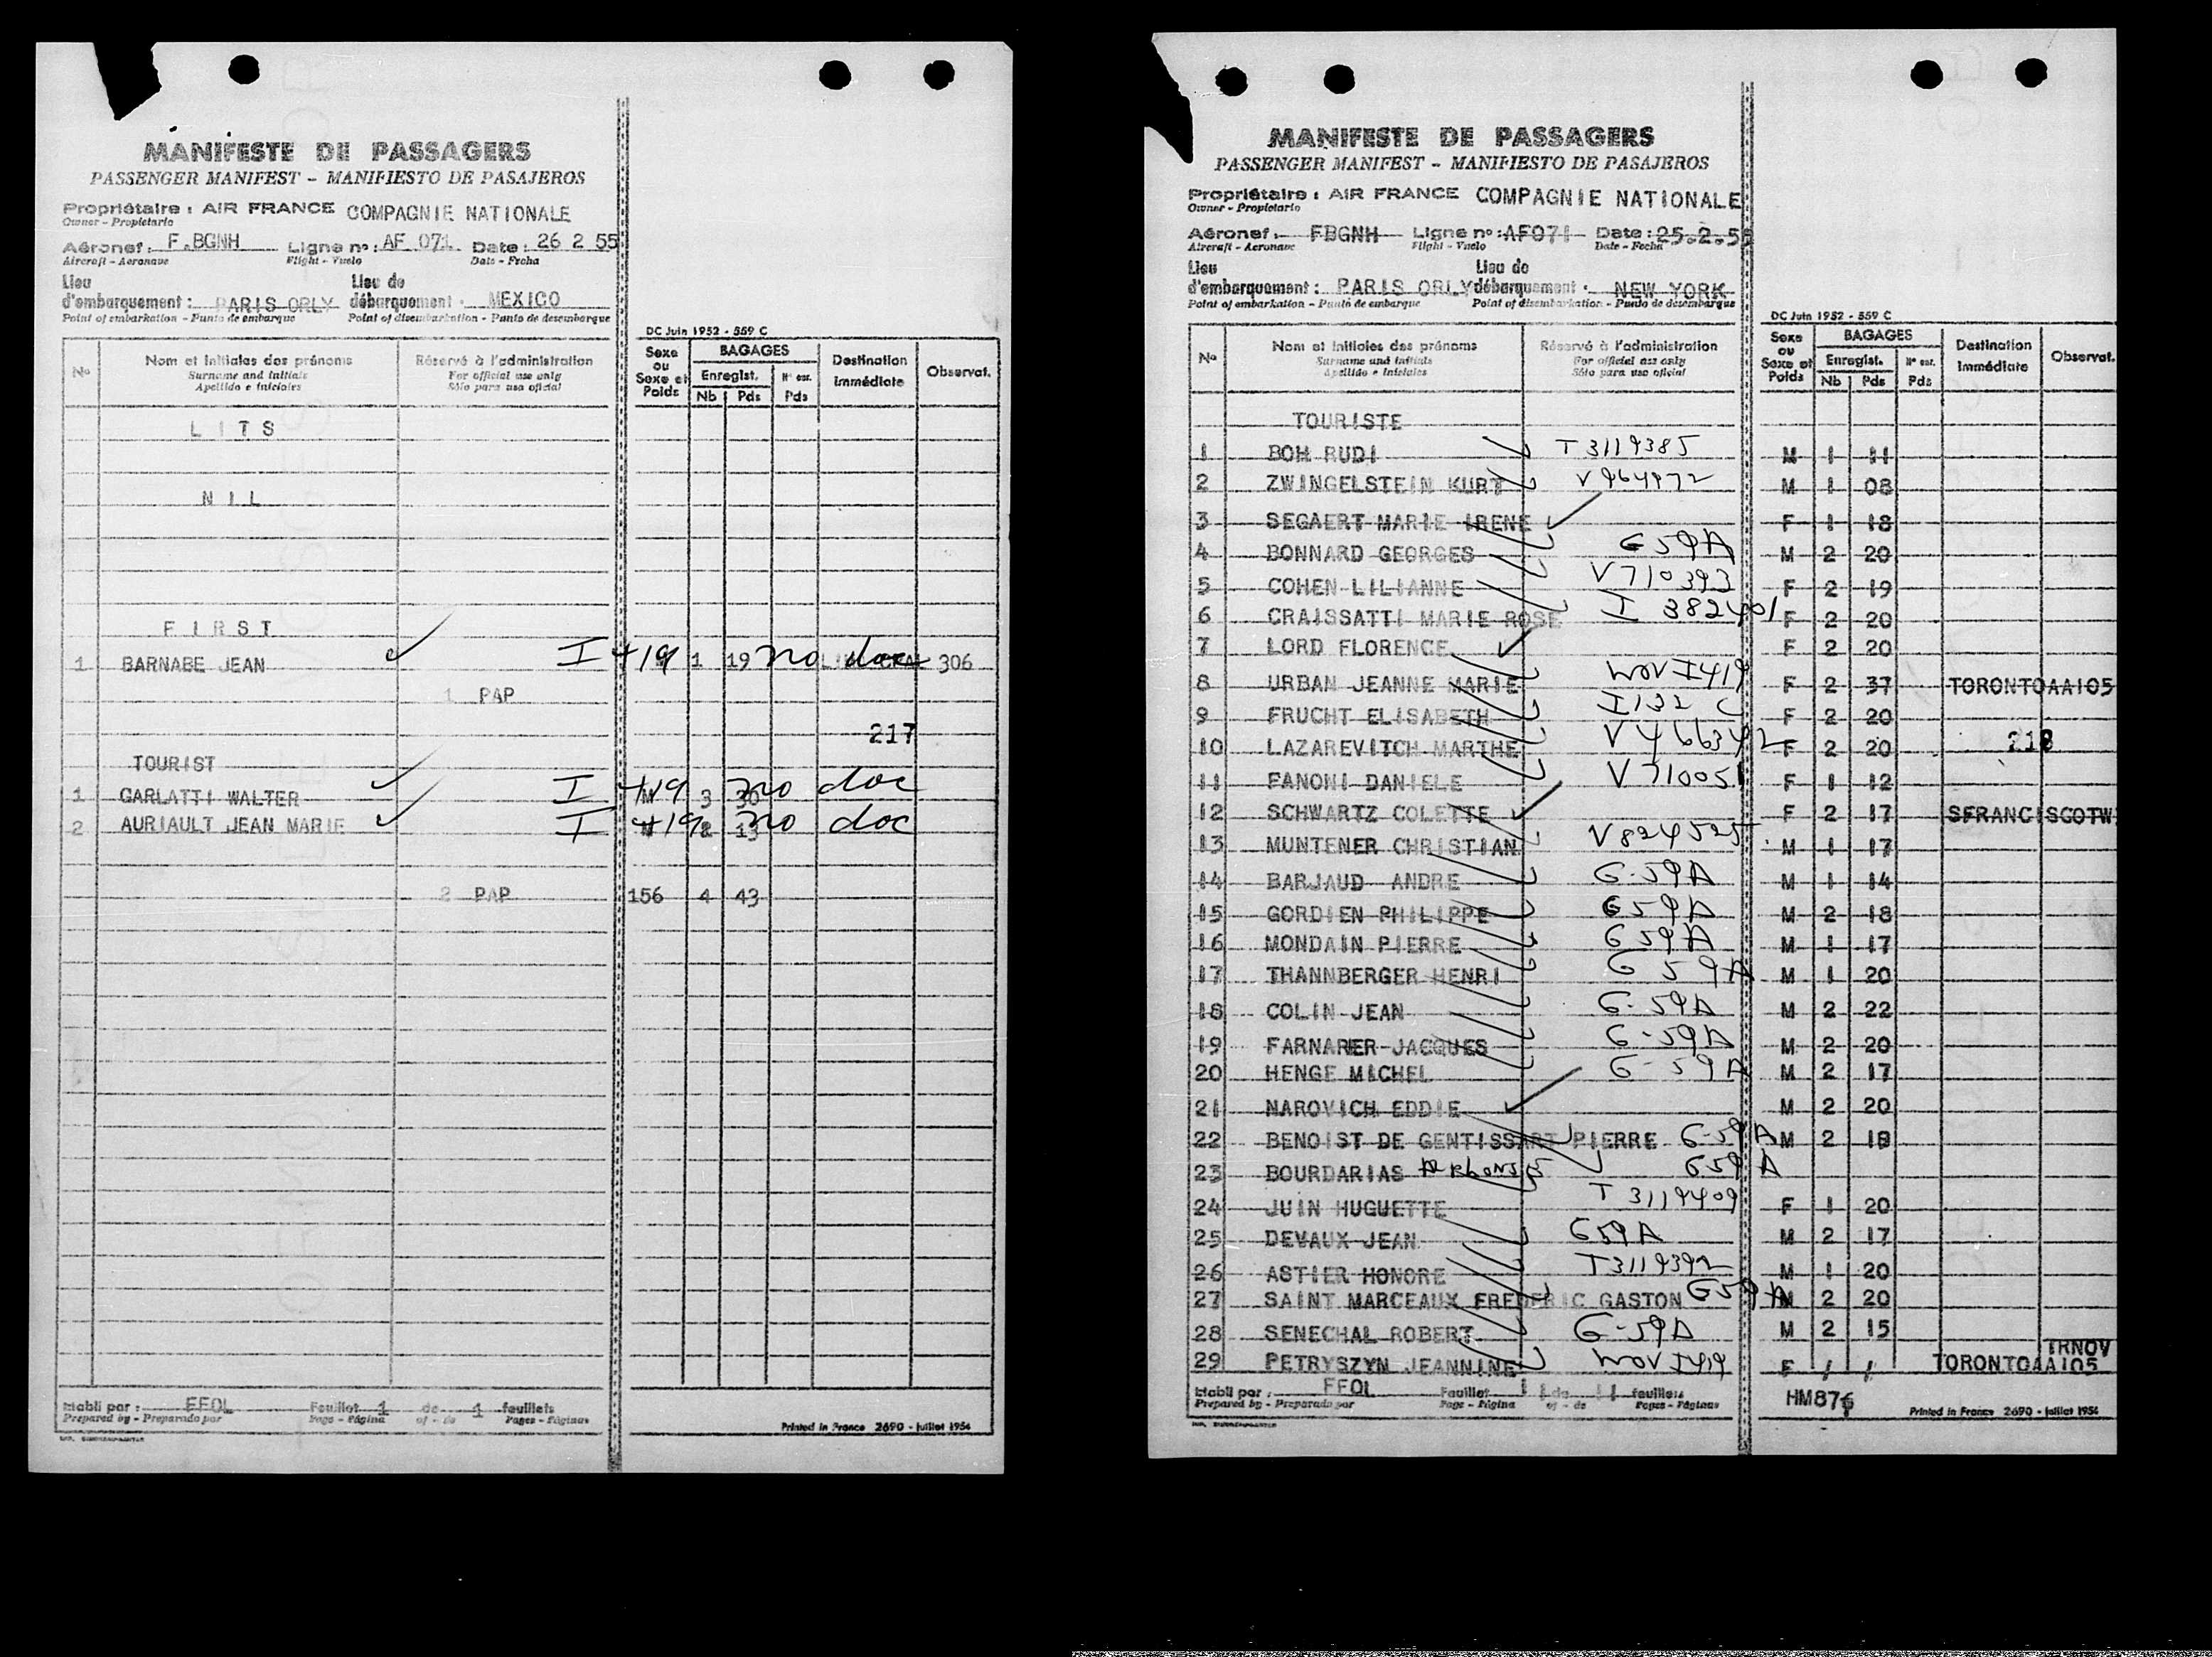 MANIFESTE DE PASSAGERS
PASSENGER MANIFEST – MANIFIESTO DE PASAJEROS
Propriétaire : AIR FRANCE COMPAGNIE NATIONALE
Owner - Propietario
Aéronef : F.BGNH Ligne nº : AF 071 Date : 26 2 55
Aircraft - Aeronave Flight - Vuelo Date - Fecha
Lieu d'embarquement : PARIS ORLY Lieu de débarquement : MEXICO
Point of embarkation - Punto de embarque Point of disembarkation - Punto de desembarque
DC Juin 1952 - 559 C
Nº Nom et initiales des prénoms Réservé à l'administration Sexe ou Sexe et Poids BAGAGES Destination immédiate Observat.
Surname and initials For official use only Enregist. Nº enr.
Apellido e iniciales Sólo para uso oficial Nb Pds Pds
LITS
NIL
FIRST
1 BARNABE JEAN I 419 1 19 no doc 306
1 PAP
217
TOURIST
1 GARLATTI WALTER I 419 M 3 30 no doc
2 AURIAULT JEAN MARIE I 419 13 no doc
2 PAP 156 4 43
Etabli par : FFOL Feuillet 1 de 1 feuillets
Prepared by - Preparado por Page - Página of - de Pages - Páginas
Printed in France 2690 - Juillet 1954
MANIFESTE DE PASSAGERS
PASSENGER MANIFEST – MANIFIESTO DE PASAJEROS
Propriétaire : AIR FRANCE COMPAGNIE NATIONALE
Owner - Propietario
Aéronef : FBGNH Ligne nº : AF071 Date : 25.2.55
Aircraft - Aeronave Flight - Vuelo Date - Fecha
Lieu d'embarquement : PARIS ORLY Lieu de débarquement : NEW YORK
Point of embarkation - Punto de embarque Point of disembarkation - Punto de desembarque
DC Juin 1952 - 559 C
Nº Nom et initiales des prénoms Réservé à l'administration Sexe ou Sexe et Poids BAGAGES Destination immédiate Observat.
Surname and initials For official use only Enregist. Nº enr.
Apellido e iniciales Sólo para uso oficial Nb Pds Pds
TOURISTE
1 BOH RUDI T 3119385 M 1 11
2 ZWINGELSTEIN KURT V 964972 M 1 08
3 SEGAERT MARIE IRENE F 1 18
4 BONNARD GEORGES G 59A M 2 20
5 COHEN LILIANNE V 710393 F 2 19
6 CRAISSATTI MARIE ROSE I 382401 F 2 20
7 LORD FLORENCE F 2 20
8 URBAN JEANNE MARIE WOV I419 F 2 37 TORONTOAA105
9 FRUCHT ELISABETH I132 C F 2 20
10 LAZAREVITCH MARTHE V 466342 F 2 20 218
11 FANONI DANIELE V 710051 F 1 12
12 SCHWARTZ COLETTE F 2 17 SFRANCISCOTW
13 MUNTENER CHRISTIAN V 824525 M 1 17
14 BARJAUD ANDRE G-59A M 1 14
15 GORDIEN PHILIPPE G59A M 2 18
16 MONDAIN PIERRE G59A M 1 17
17 THANNBERGER HENRI G 59A M 1 20
18 COLIN JEAN G-59A M 2 22
19 FARNARER JACQUES G-59A M 2 20
20 HENGE MICHEL G-59A M 2 17
21 NAROVICH EDDIE M 2 20
22 BENOIST DE GENTISSART PIERRE G-59A M 2 18
23 BOURDARIAS G59A
24 JUIN HUGUETTE T 3119409 F 1 20
25 DEVAUX JEAN G59A M 2 17
26 ASTIER HONORE T3119392 M 1 20
27 SAINT MARCEAUX FREDERIC GASTON G59A M 2 20
28 SENECHAL ROBERT G-59A M 2 15
TRNOV
29 PETRYSZYN JEANNINE WOV I419 F / / TORONTOAA105
Etabli par : FFOL Feuillet 1 de feuillets HM876
Prepared by - Preparado por Page - Página of - de Pages - Páginas
Printed in France 2690 - Juillet 1954